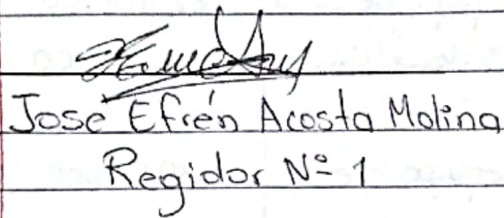 Jose Efrén Acosta Molina
Regidor Nº 1